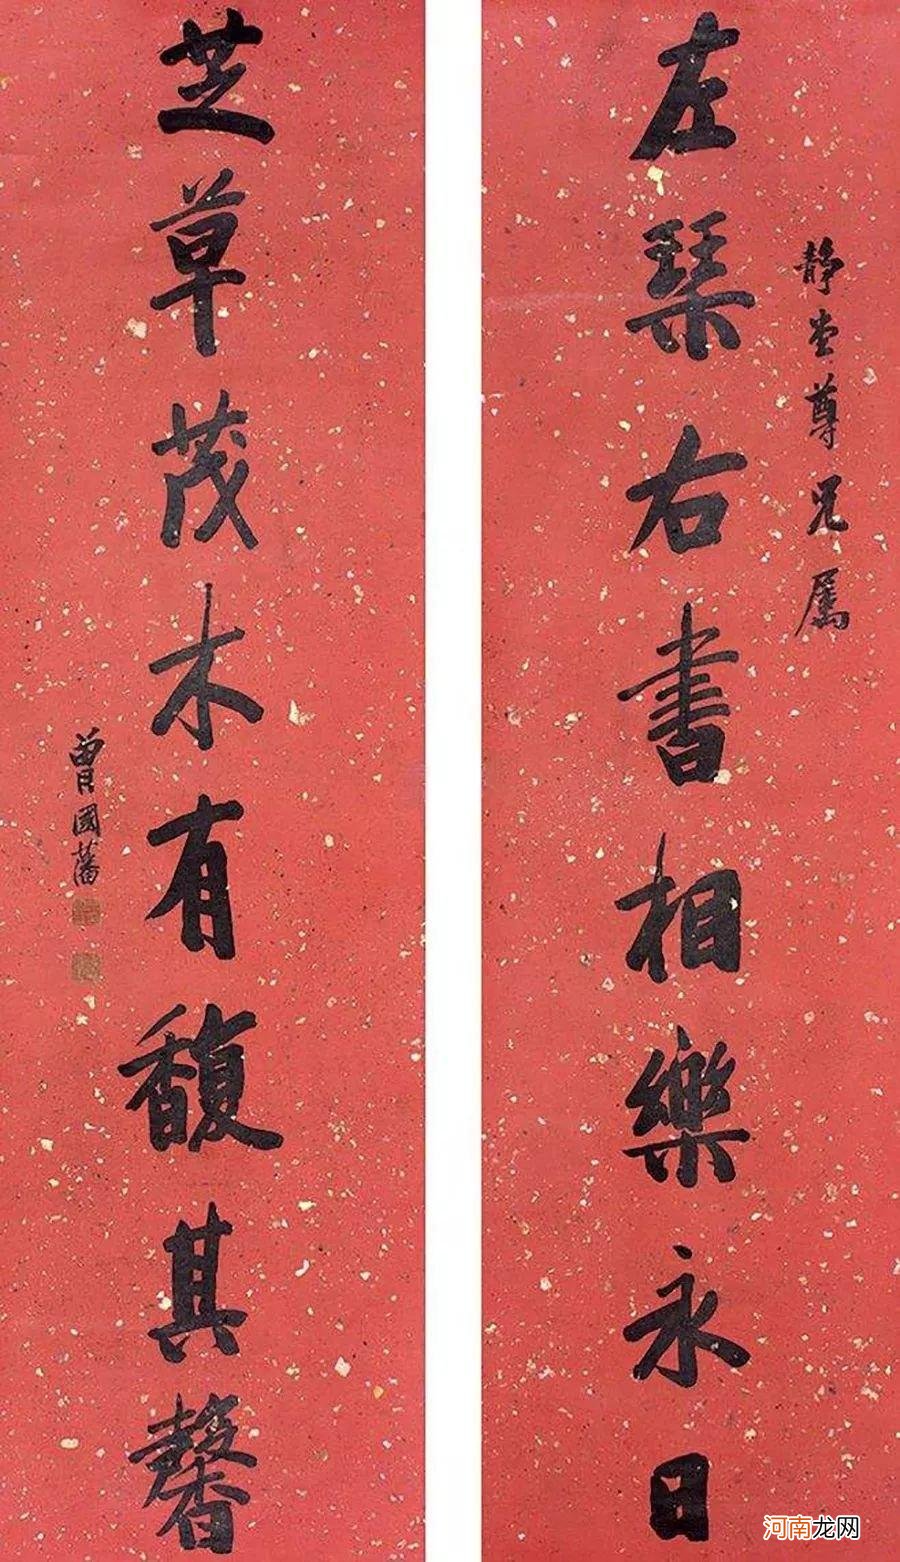 静堂尊兄属
左琴右书相樂永日
芝草茂木有馥其馨
曾國藩
河南龙网